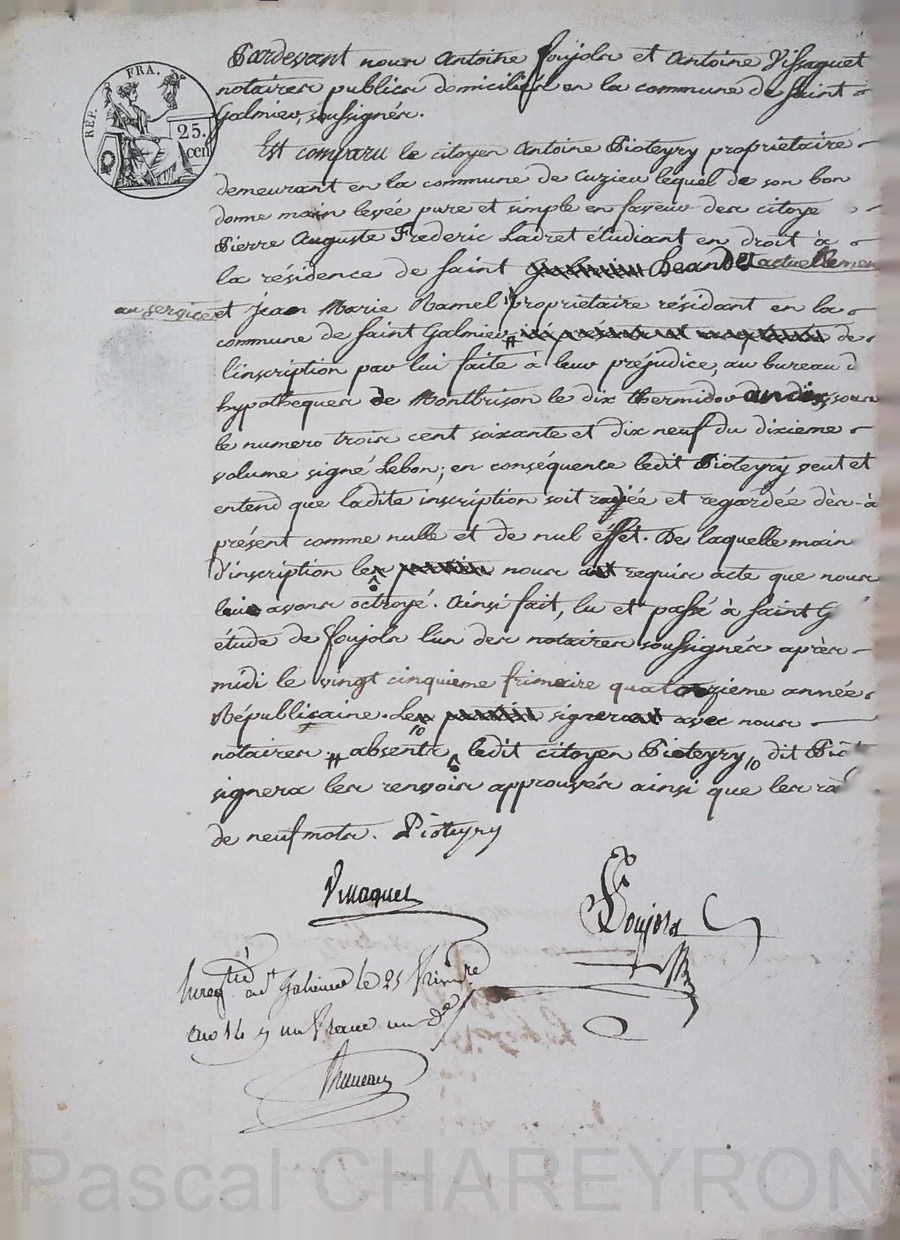 REP. FRA.
25.
cen
Pardevant nous Antoine Foujols et Antoine Vissaguet
notaires publics domiciliés en la commune de Saint
Galmier, soussignés.
Est comparu le citoyen Antoine Pioteyry propriétaire
demeurant en la commune de Cuzieu lequel de son bon
donne main levée pure et simple en faveur des citoye
Pierre Auguste Frederic Ladret étudiant en droit à
la résidence de Saint actuellemen
au service et Jean Marie Ramel propriétaire résidant en la
commune de Saint Galmier de
l'inscription par lui faite à leur préjudice, au bureau d
hypotheques de Montbrison le dix thermidor an dix, sous
le numero trois cent soixante et dix neuf du dixieme
volume signé Lebon; en conséquence ledit Pioteyry veut et
entend que ladite inscription soit rayée et regardée dès-à
présent comme nulle et de nul éffet. De laquelle main
d'inscription nous requis acte que nous
avons octroyé. Ainsi fait, lu et passé à Saint G
étude de Foujols l'un des notaires soussignés après
midi le vingt cinquieme frimaire quatorzieme année
Républicaine. avec nous
notaires absents ledit citoyen Pioteyry dit Pio
signera les renvois approuvés ainsi que les ra
de neuf mots. Pioteyry
Vissaguet
Foujols
Enregtré à St Galmier le 25 frimre
an 14 un franc un de
Pascal CHAREYRON